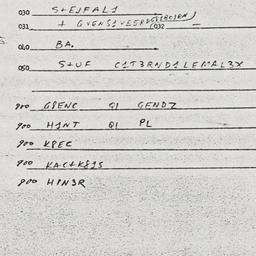 030 S+EJFAL1
031
040 BA.
050 S+UF C1T3RND1LEMAL3X
900 G8ENC Q1 GENDZ
900 H1NT Q1 PL
900 K8EC
900 KAC+K81S
900 H8N3R